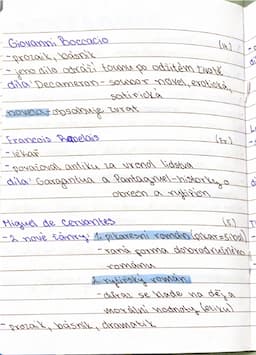 Giovanni Boccacio (It)
- prozaik, básník
- jeho dílo odráží touhu po požitém životě
díla: Decameron - soubor novel, erotická,
satirická
novela - obsahuje zvrat
Francois Rabelais (Fr)
- lékař
- považoval antiku za vrchol lidstva
díla: Gargantua a Pantagruel - historky o
obrech a rytířích
Miguel de Cervantes (Š)
- 2 nové žánry: 1. pikareskní román (pikar=šibal)
- raná forma dobrodružného
románu
2. rytířský román
- důraz se klade na děj a
morální hodnoty (etiku)
- prozaik, básník, dramatik